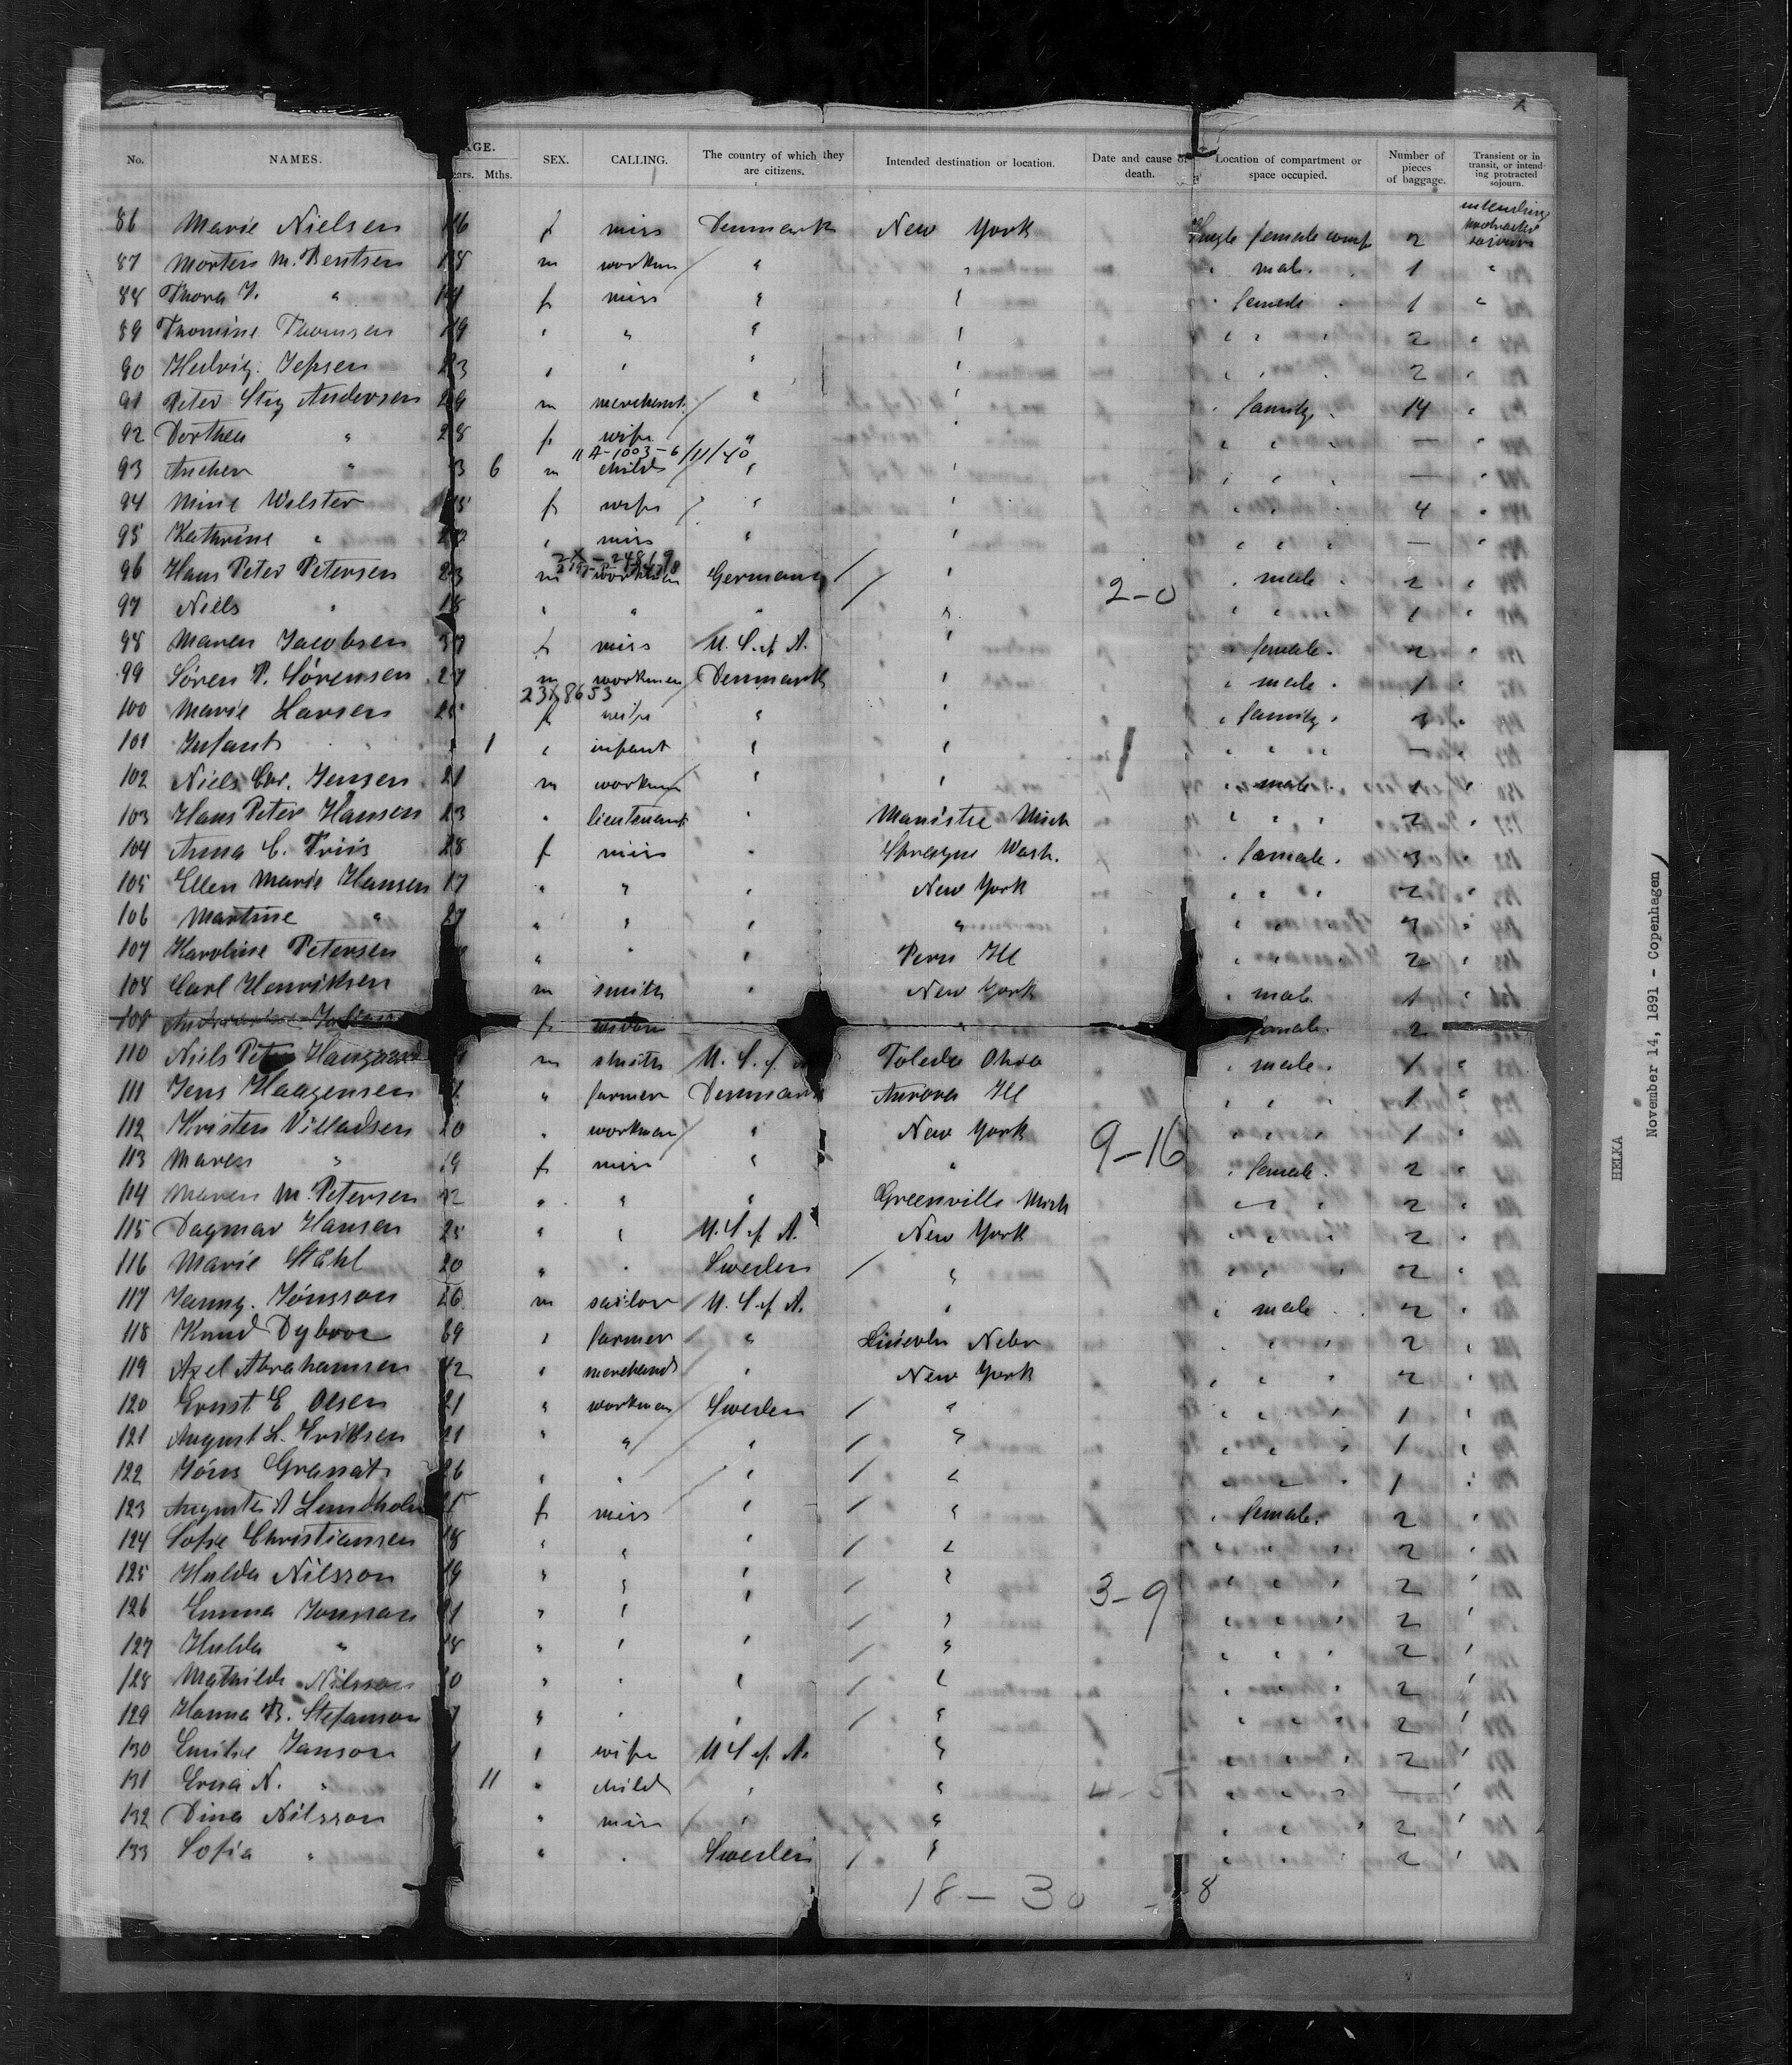 No. NAMES. AGE. SEX. CALLING. The country of which they are citizens. Intended destination or location. Date and cause of death. Location of compartment or space occupied. Number of pieces of baggage. Transient or in transit, or intending protracted sojourn.
ears. Mths.
86 Marie Nielsen 16 f miss Denmark New York Single female comp 2 intending protracted sojourn
87 Morten M. Bentsen 18 m workman / " " " male " 1 "
88 Thora J. " f miss " " " female " 1 "
89 Thomine Thomsen 19 " " " " " " " 2 "
90 Hedvig Jepsen 23 " " " " " " " 2 "
91 Peter Stig Andersen 29 m merchant / " " " family " 14 "
92 Dorthea " 28 f wife " " " " " — "
11 A-1003-6/11/40
93 Ancher " 3 6 m child / " " " " " — "
94 Mine Wilster f wife / " " " " " 4 "
95 Kathrine " " miss " " " " " — "
2X-24819
96 Hans Peter Petersen 23 m workman Germany / " " male " 2 "
97 Niels " 18 " " " / " 2-0 " " " 1 "
98 Maren Jacobsen 37 f miss U. S. of A. " " female " 2 "
99 Søren P. Sørensen 27 m workman / Denmark " " male " 1 "
23X8653
100 Marie Larsen f wife " " " family " "
101 Infant " 1 " infant " " 1 " " " — "
102 Niels Chr. Jensen 21 m workman / " " " male " 1 "
103 Hans Peter Hansen 23 " lieutenant " Manistee Mich " " " 2 "
104 Anna C. Friis 28 f miss " Sprague Wash. " female " 3 "
105 Ellen Marie Hansen 17 " " " New York " " " 2 "
106 Martine " 27 " " " " " " " 2 "
107 Karoline Petersen " " " Peru Ill " " " 2 "
108 Carl Henriksen m smith " New York " male " 1 "
109 f widow " female " 2
110 Niels Peter m smith U. S. of A Toledo Ohio " male " 1 "
111 Jens Haagensen " farmer Denmark Aurora Ill " " " 1 "
112 Kristen Villadsen 20 " workman / " New York 9-16 " " " 1 "
113 Maren " 19 f miss " " " female " 2 "
114 Maren M. Petersen " " " Greenville Mich " " " 2 "
115 Dagmar Hansen 25 " " U. S. of A. New York " " " 2 "
116 Marie Ståhl 20 " " Sweden / " " " " 2 "
117 Janny Jönsson 26 m sailor / U. S. of A. " " male " 2 "
118 Knud Dyhver 69 " farmer / " Lincoln Nebr " " " 2 "
119 Axel Abrahamsen 42 " merchand / " New York " " " 2 "
120 Ernst E Olsen 21 " workman / Sweden / " " " " 1 "
121 August L. Eriksen 21 " " / " / " " " " 1 "
122 Jöns Granat 26 " " / " / " " " " 1 "
123 Auguste A Lundholm f miss " / " " female " 2 "
124 Sofie Christiansen 18 " " " / " " " " 2 "
125 Hulda Nilsson 19 " " " / " 3-9 " " " 2 "
126 Emma Jonsson 21 " " " / " " " " 2 "
127 Hulda " 18 " " " / " " " " 2 "
128 Mathilde Nilsson " " " / " " " " 2 "
129 Hanna B. Stefanson " " " / " " " " 2 "
130 Emilie Janson " wife U S of A. " " " " 2 "
131 Erna N. " 11 " child " " 4-5 " " " — "
132 Dina Nilsson " miss / " " " " " 2 "
133 Sofia " " " Sweden / " " " " 2 "
18 — 30 - 8
HELKA
November 14, 1891 - Copenhagen